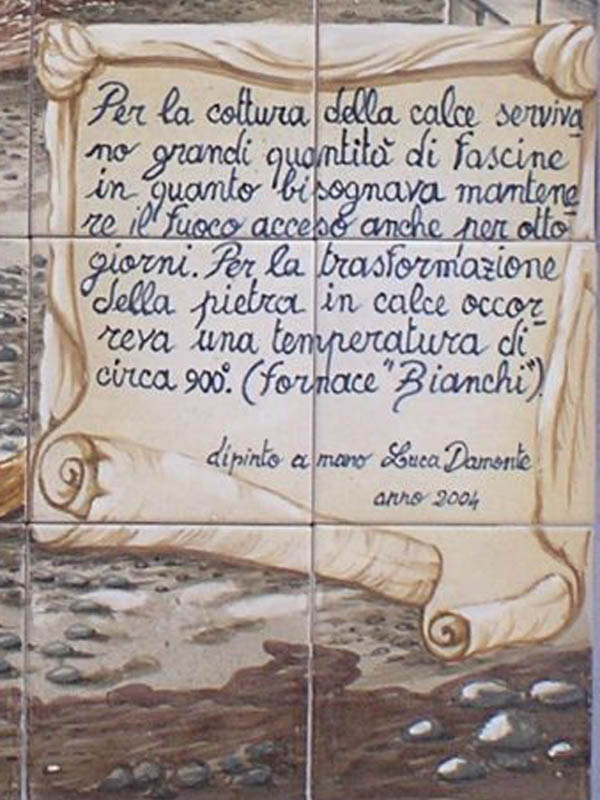 Per la cottura della calce serviva_
no grandi quantità di fascine
in quanto bisognava mantene_
re il fuoco acceso anche per otto
giorni. Per la trasformazione
della pietra in calce occor_
reva una temperatura di
circa 900°. (fornace "Bianchi")
dipinto a mano Luca Damonte
anno 2004